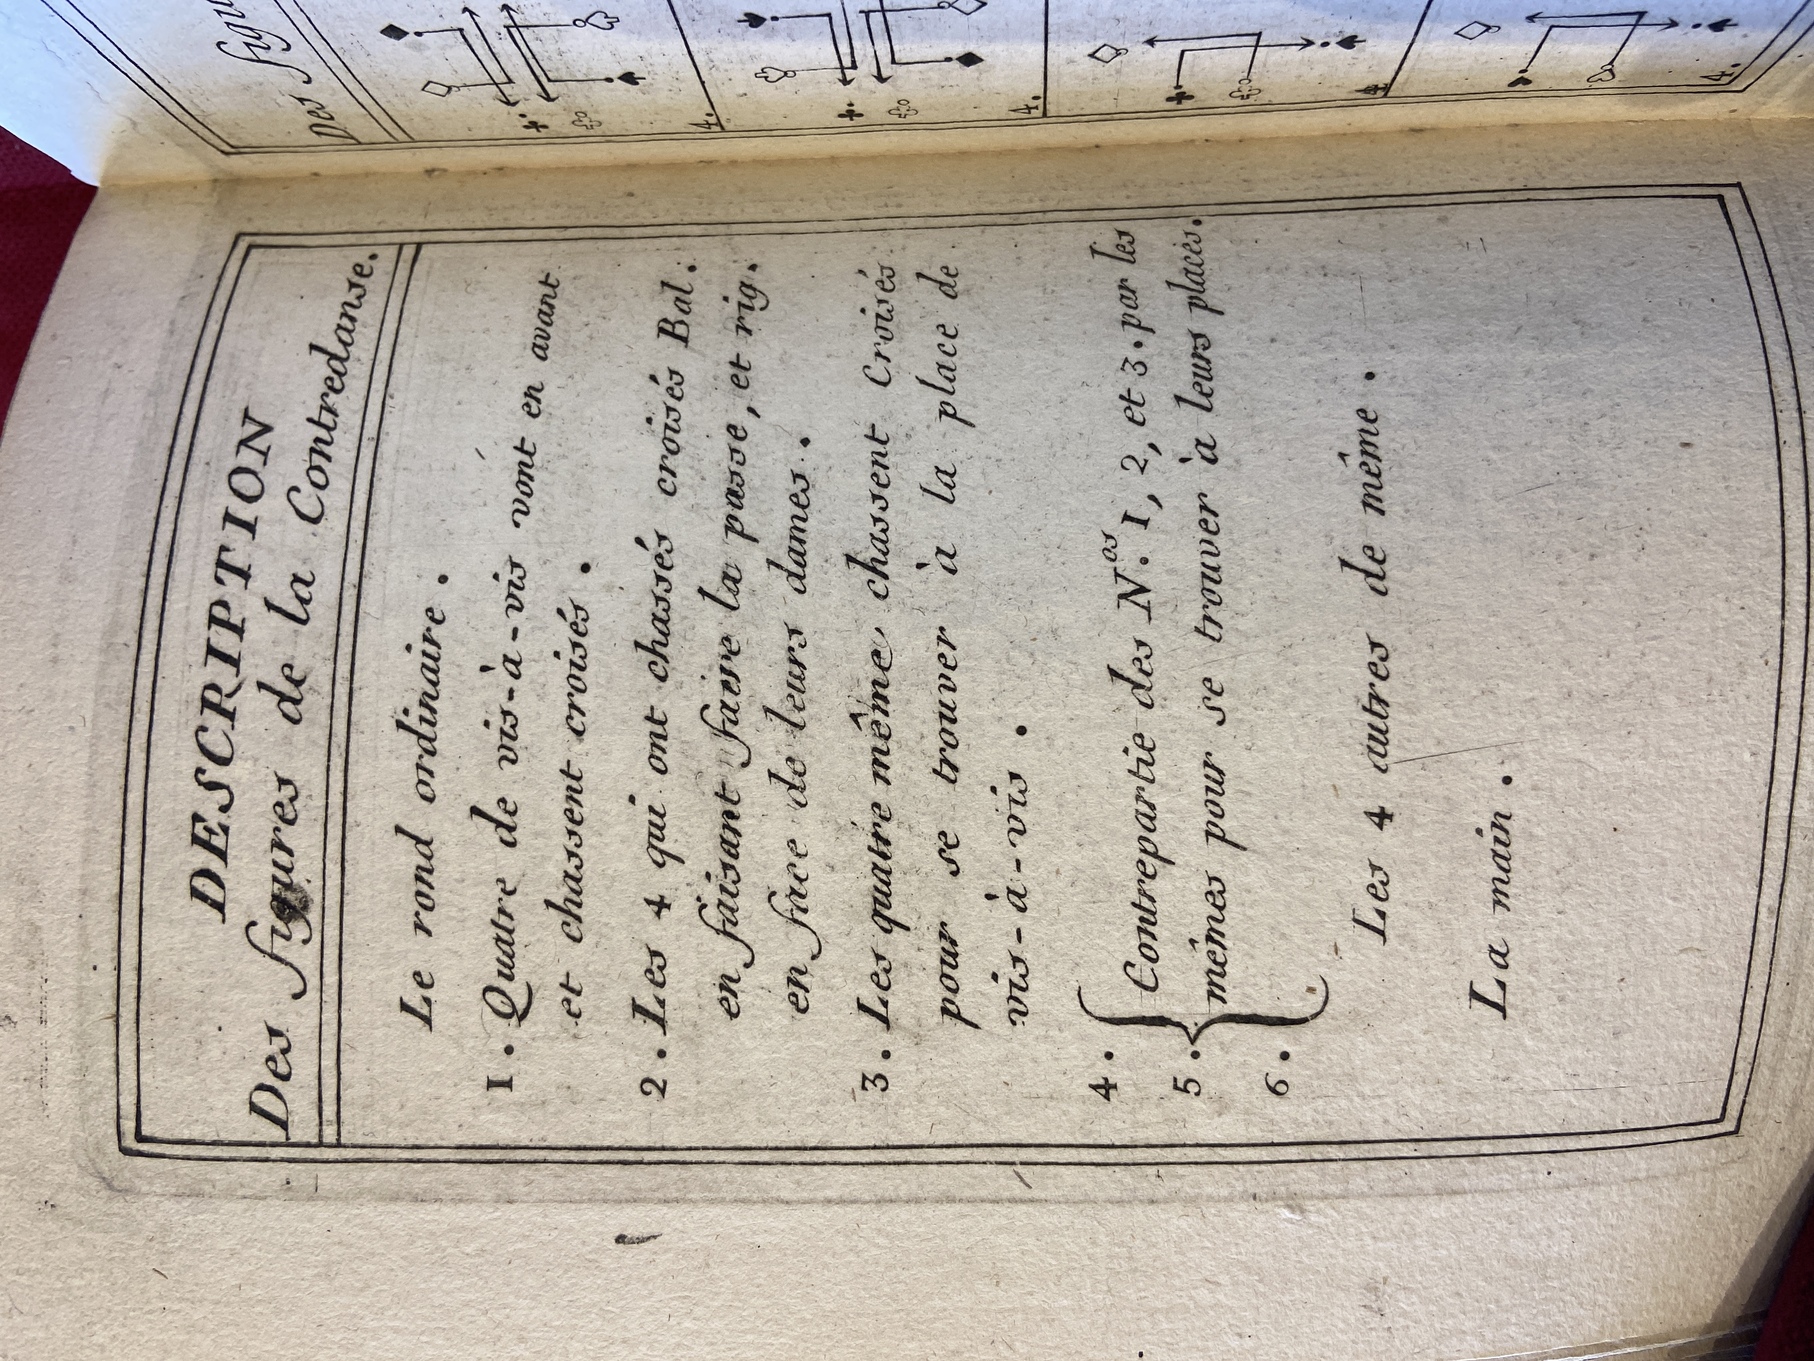 DESCRIPTION
Des figures de la Contredanse.
Le rond ordinaire.
1. Quatre de vis-à-vis vont en avant
et chassent croisés.
2. Les 4 qui ont chassés croisés Bal.
en faisant faire la passe, et rig.
en face de leurs dames.
3. Les quatre même chassent Croisés
pour se trouver à la place de
vis-à-vis.
4. Contrepartie des N.os 1, 2, et 3. par les
5. mêmes pour se trouver à leurs places.
6.
Les 4 autres de même.
La main.
Des figu
4.
4.
4
4.